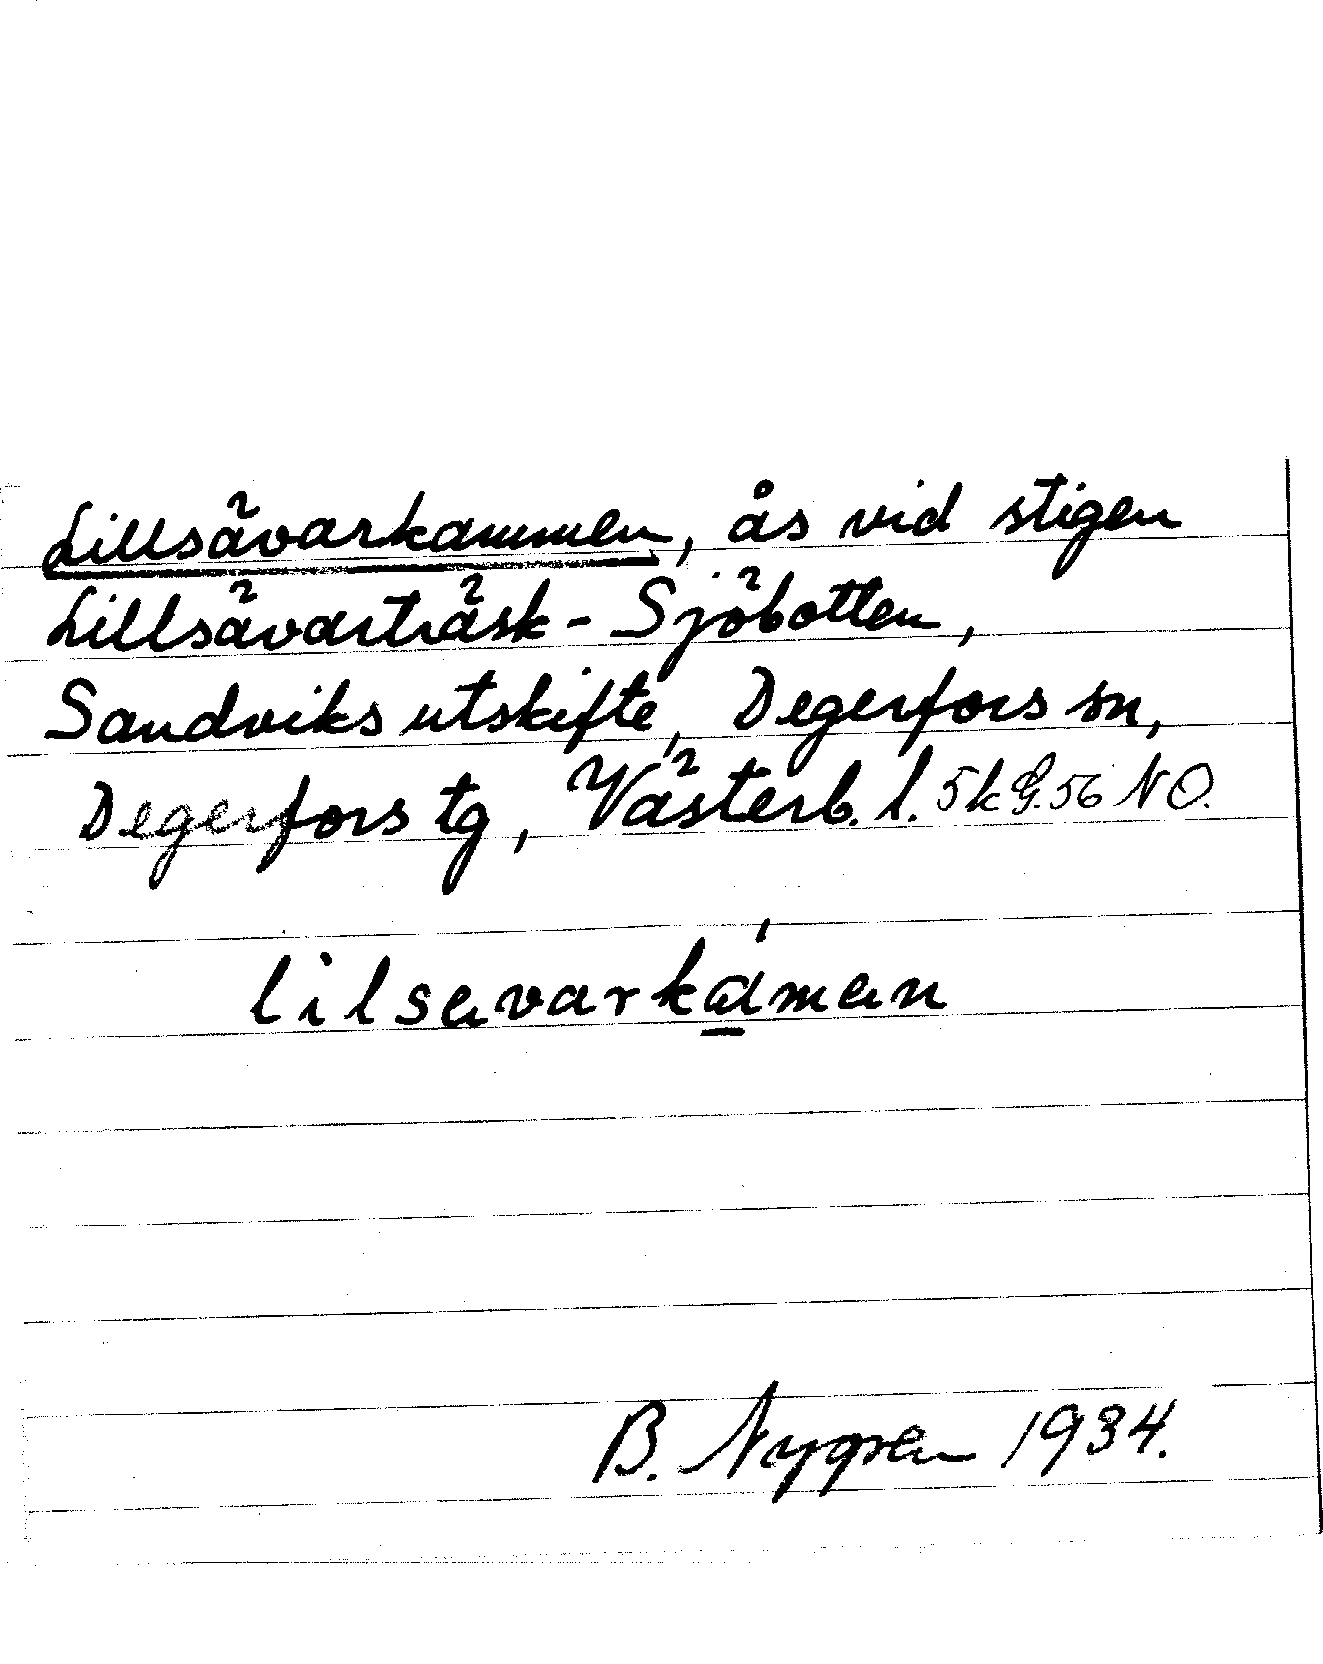 Lillsävarkammen, ås vid stigen
Lillsävarträsk - Sjöbotten,
Sandviks utskifte, Degerfors sn,
Degerfors tg, Västerb. l. 5k G. 56 NO.
lilsevarkáman
B. Nygren 1934.